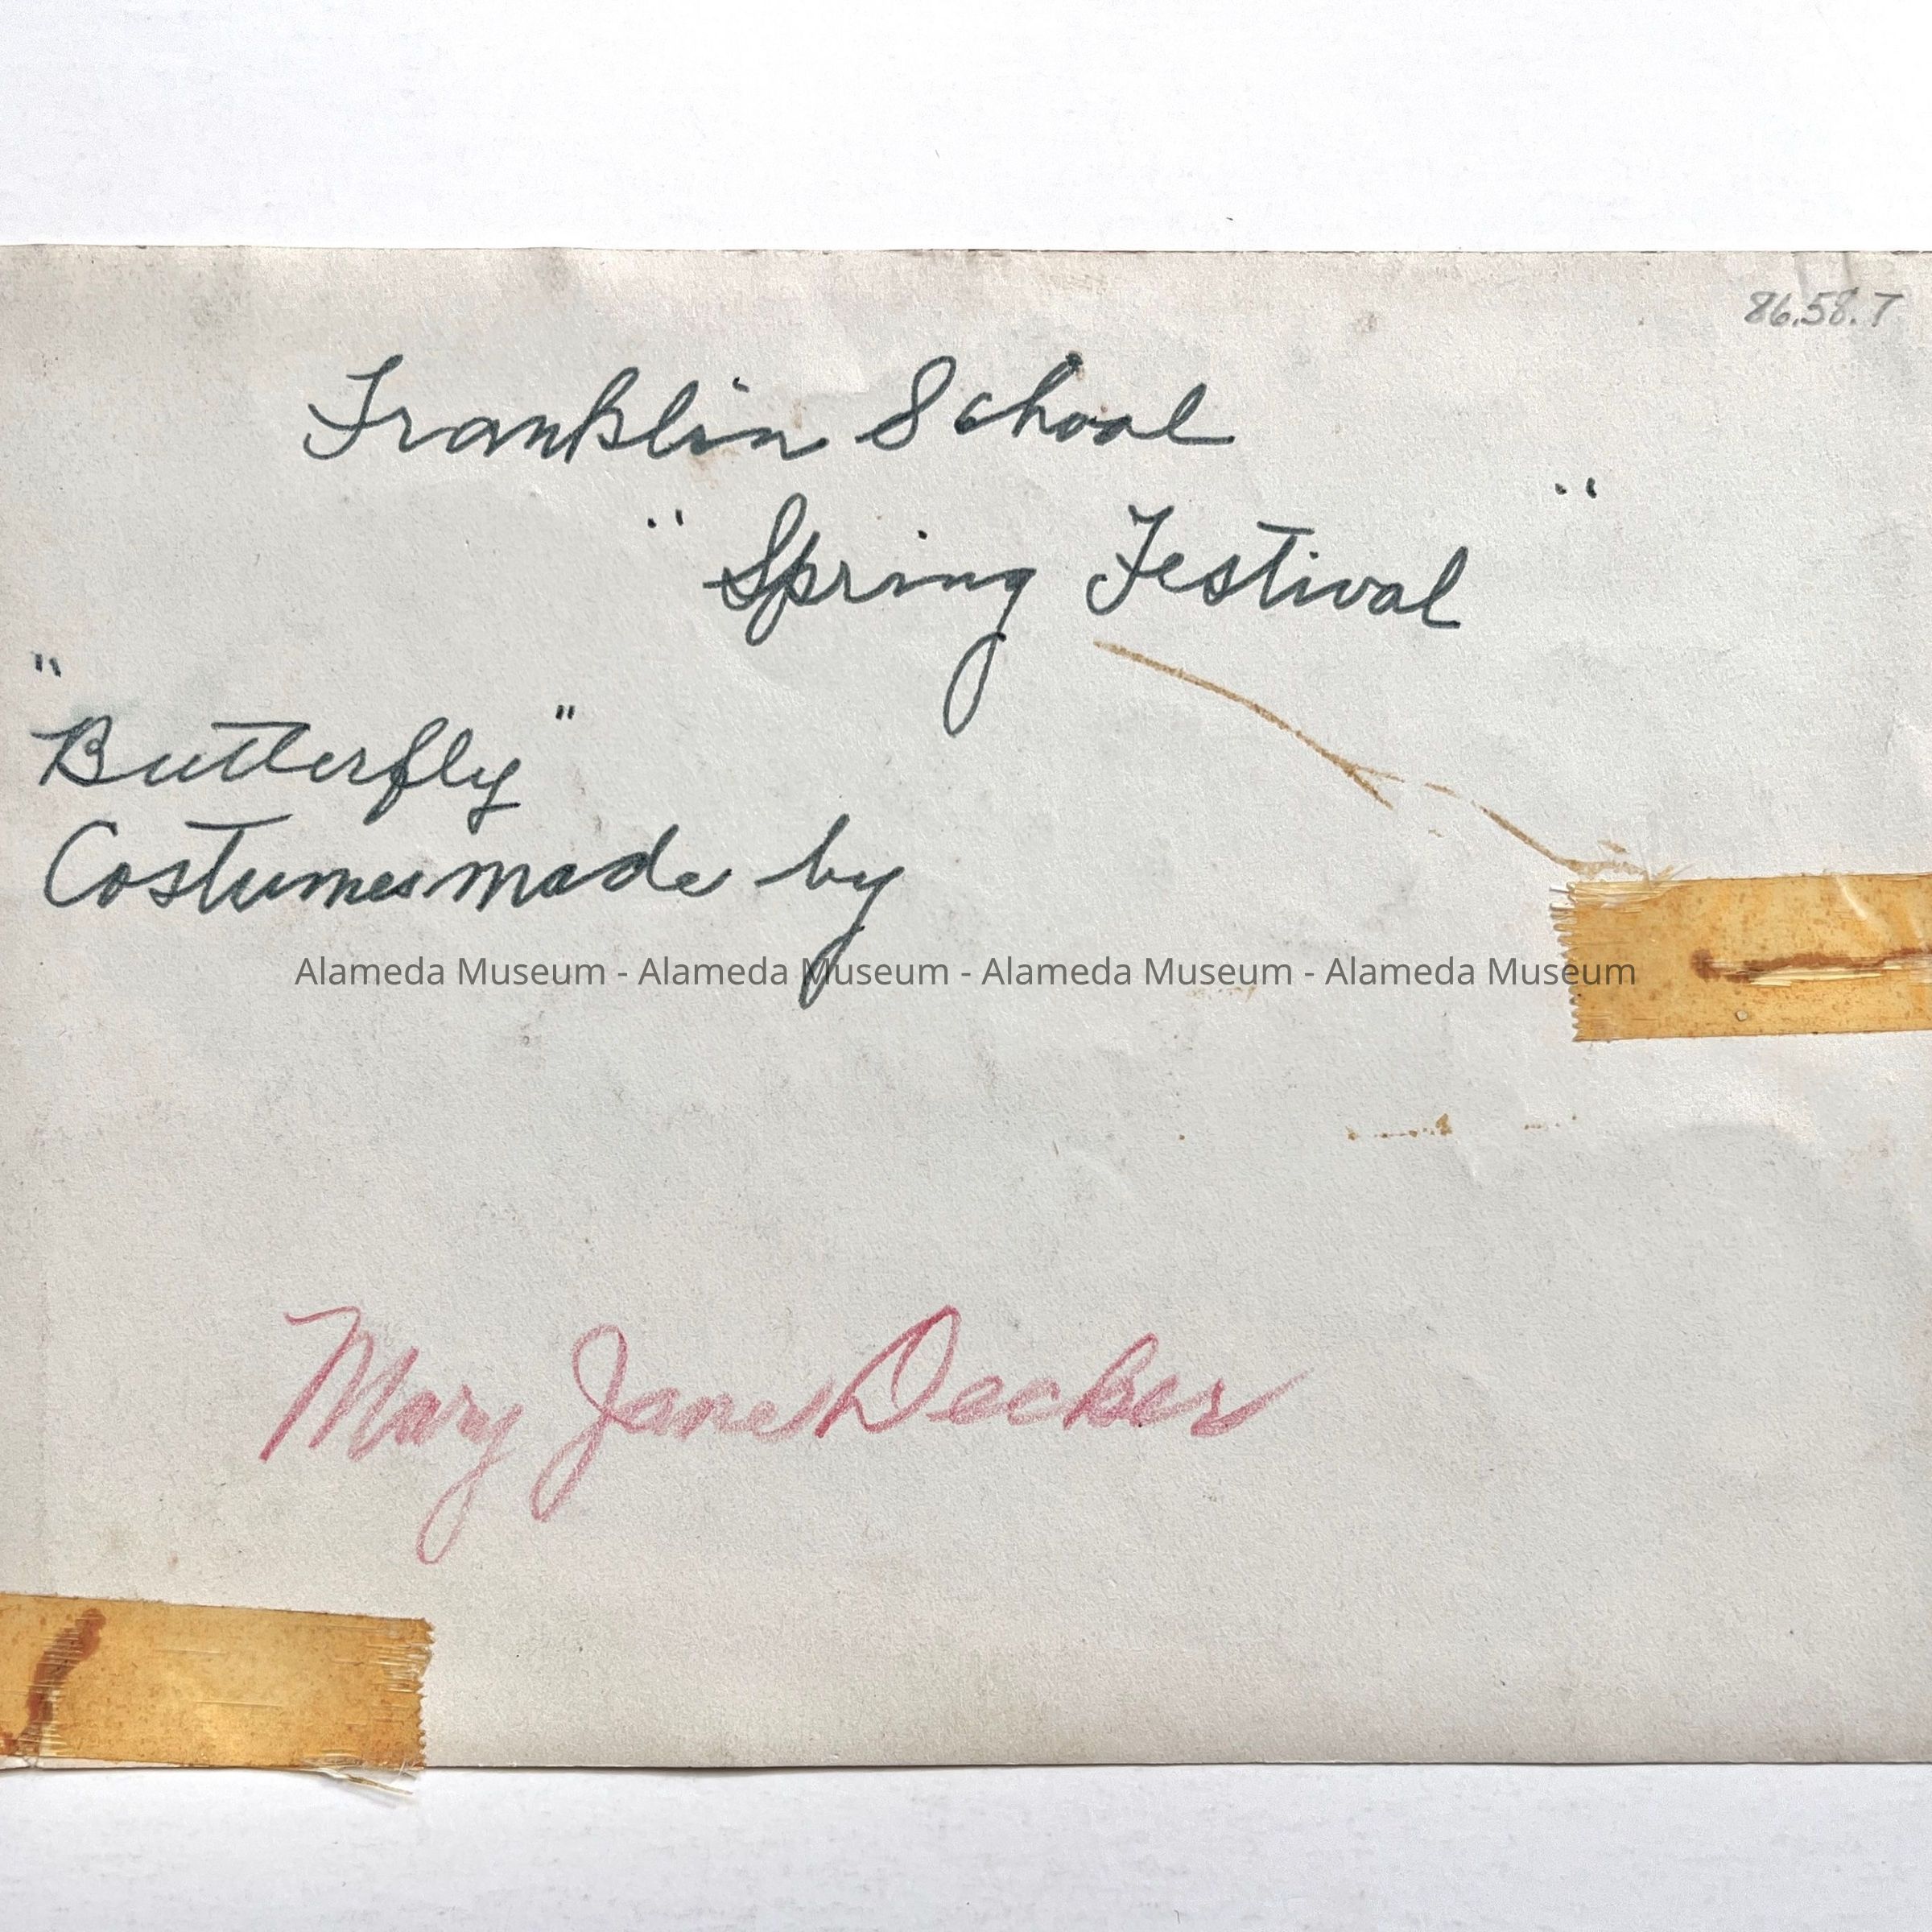 86.58.7
Franklin School
"Spring Festival"
"Butterfly"
Costumes made by
Alameda Museum - Alameda Museum - Alameda Museum - Alameda Museum
Mary Jane Decker